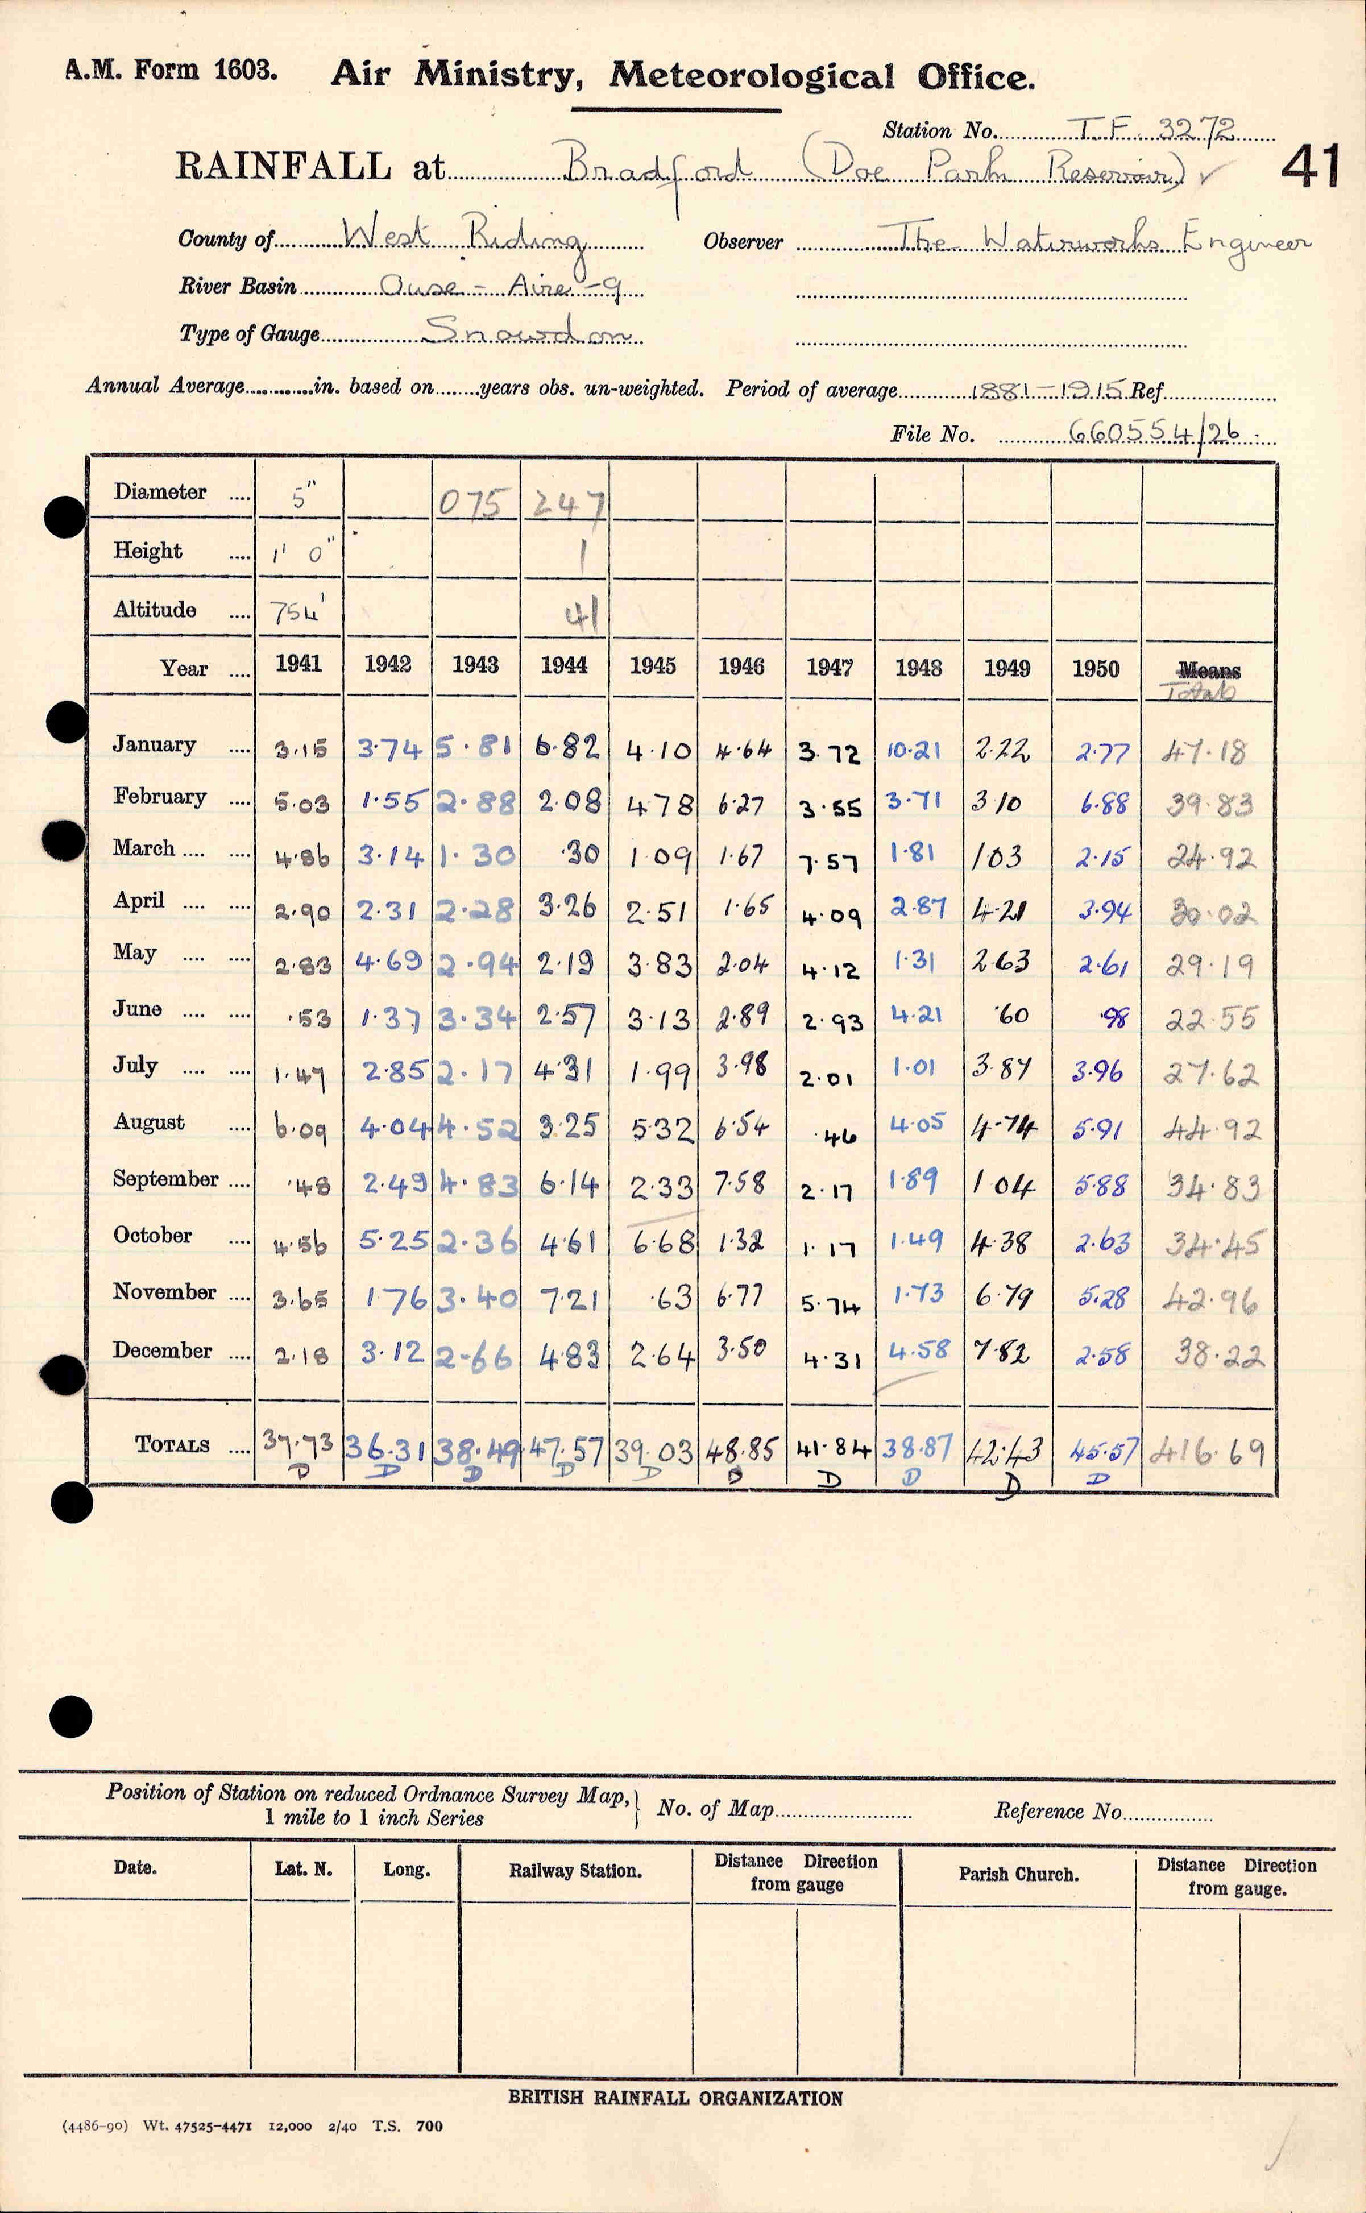 A.M. Form 1603. Air Ministry, Meteorological Office.
Station No. T.F. 3272
41
RAINFALL at Bradford (Doe Park Reservoir) ✓
County of West Riding Observer The Waterworks Engineer
River Basin Ouse - Aire - 9
Type of Gauge Snowdon
Annual Average in. based on years obs. un-weighted. Period of average 1881-1915 Ref
File No. 660554/26
Diameter .... 5" 075 247
Height .... 1' 0" 1
Altitude .... 754' 41
Year .... 1941 1942 1943 1944 1945 1946 1947 1948 1949 1950 Means
Totals
January .... 3.15 3.74 5.81 6.82 4.10 4.64 3.72 10.21 2.22 2.77 47.18
February .... 5.03 1.55 2.88 2.08 4.78 6.27 3.55 3.71 3.10 6.88 39.83
March .... .... 4.86 3.14 1.30 .30 1.09 1.67 7.57 1.81 1.03 2.15 24.92
April .... .... 2.90 2.31 2.28 3.26 2.51 1.65 4.09 2.87 4.21 3.94 30.02
May .... .... 2.83 4.69 2.94 2.19 3.83 2.04 4.12 1.31 2.63 2.61 29.19
June .... .... .53 1.37 3.34 2.57 3.13 2.89 2.93 4.21 .60 .98 22.55
July .... .... 1.47 2.85 2.17 4.31 1.99 3.98 2.01 1.01 3.87 3.96 27.62
August .... 6.09 4.04 4.52 3.25 5.32 6.54 .46 4.05 4.74 5.91 44.92
September .... .48 2.49 4.83 6.14 2.33 7.58 2.17 1.89 1.04 5.88 34.83
October .... 4.56 5.25 2.36 4.61 6.68 1.32 1.17 1.49 4.38 2.63 34.45
November .... 3.65 1.76 3.40 7.21 .63 6.77 5.74 1.73 6.79 5.28 42.96
December .... 2.18 3.12 2.66 4.83 2.64 3.50 4.31 4.58 7.82 2.58 38.22
TOTALS .... 37.73 36.31 38.49 47.57 39.03 48.85 41.84 38.87 42.43 45.57 416.69
D D D D D D D D D D
Position of Station on reduced Ordnance Survey Map,
1 mile to 1 inch Series
No. of Map Reference No.
Date. Lat. N. Long. Railway Station. Distance Direction from gauge Parish Church. Distance Direction from gauge.
BRITISH RAINFALL ORGANIZATION
(4486-90) Wt. 47525-4471 12,000 2/40 T.S. 700